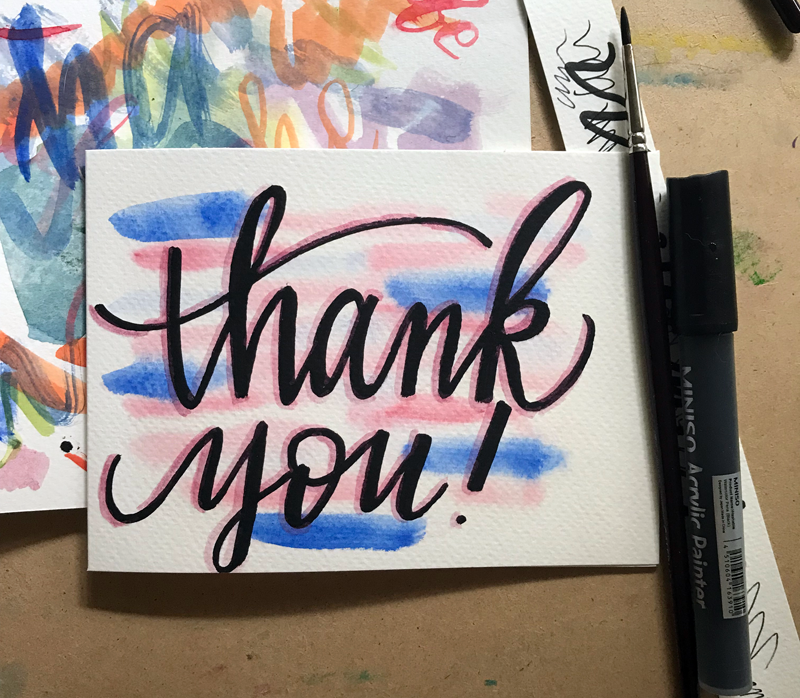 thank
you!
MINISO Acrylic Painter
MINISO